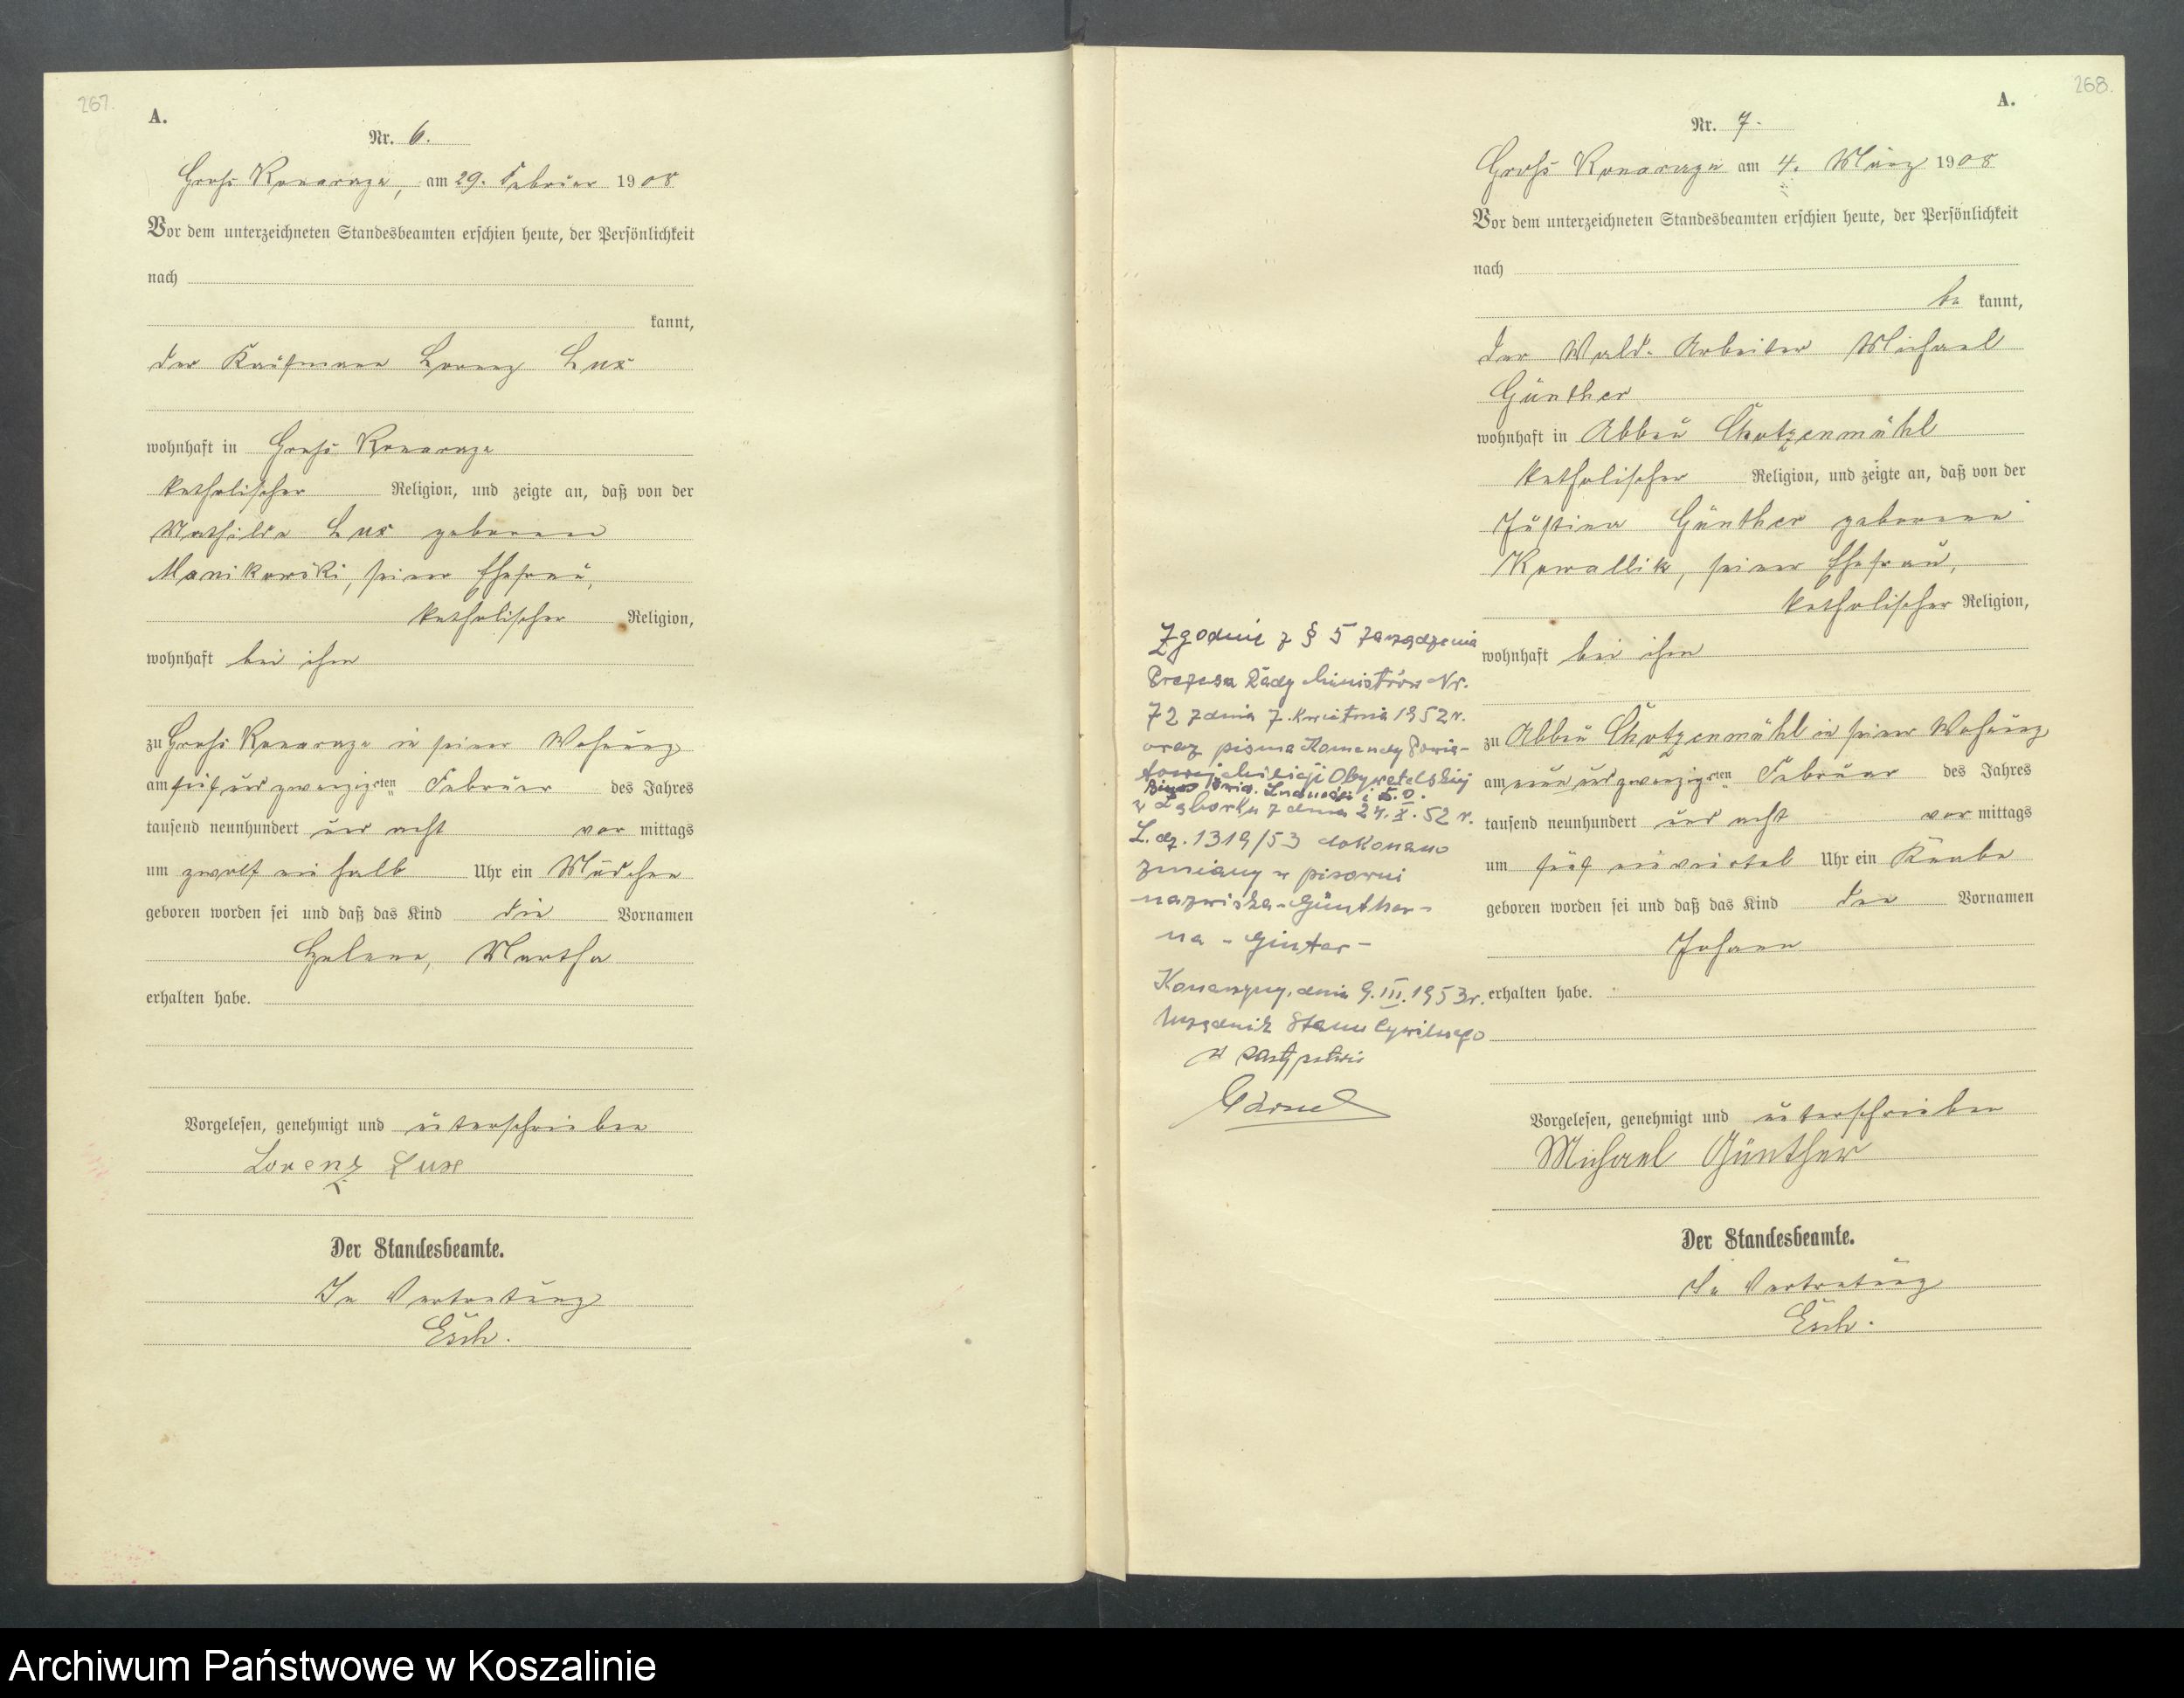 267.
A.
Nr. 6.
Groß Konarzyn, am 29. Februar 1908
Vor dem unterzeichneten Standesbeamten erschien heute, der Persönlichkeit
nach
kannt,
der Kaufmann Lorenz Lux
wohnhaft in Groß Konarzyn
katholischer Religion, und zeigte an, daß von der
Mathilde Lux geborenen
Manikowski, seiner Ehefrau,
katholischer Religion,
wohnhaft bei ihm
zu Groß Konarzyn in seiner Wohnung
am fünfundzwanzigsten Februar des Jahres
tausend neunhundert und acht vor mittags
um zwölf ein halb Uhr ein Mädchen
geboren worden sei und daß das Kind die Vornamen
Helene, Martha
erhalten habe.
Vorgelesen, genehmigt und unterschrieben
Lorenz Lux
Der Standesbeamte.
In Vertretung
Esch.
268.
A.
Nr. 7.
Groß Konarzyn am 4. März 1908
Vor dem unterzeichneten Standesbeamten erschien heute, der Persönlichkeit
nach
be kannt,
der Wald-Arbeiter Michael
Günther
wohnhaft in Abbau Chotzenmühl
katholischer Religion, und zeigte an, daß von der
Justina Günther geborene
Kowallik, seiner Ehefrau,
katholischer Religion,
wohnhaft bei ihm
zu Abbau Chotzenmühl in seiner Wohnung
am neunundzwanzigsten Februar des Jahres
tausend neunhundert und acht vor mittags
um fünf einviertel Uhr ein Knabe
geboren worden sei und daß das Kind den Vornamen
Johann
erhalten habe.
Vorgelesen, genehmigt und unterschrieben
Michael Günther
Der Standesbeamte.
In Vertretung
Esch.
Zgodnie z § 5 zarządzenia
Prezesa Rady Ministrów Nr.
72 z dnia 7. kwietnia 1952 r.
oraz pisma Komendy Powia-
towej Milicji Obywatelskiej
Biuro Ewid. Ludności i D.O.
w Lęborku z dnia 24.X.52 r.
L.dz. 1319/53 dokonano
zmiany w pisowni
nazwiska - Günther -
na - Ginter -
Konarzyny, dnia 9.III.1953 r.
Urzędnik Stanu Cywilnego
w zastępstwie
Archiwum Państwowe w Koszalinie